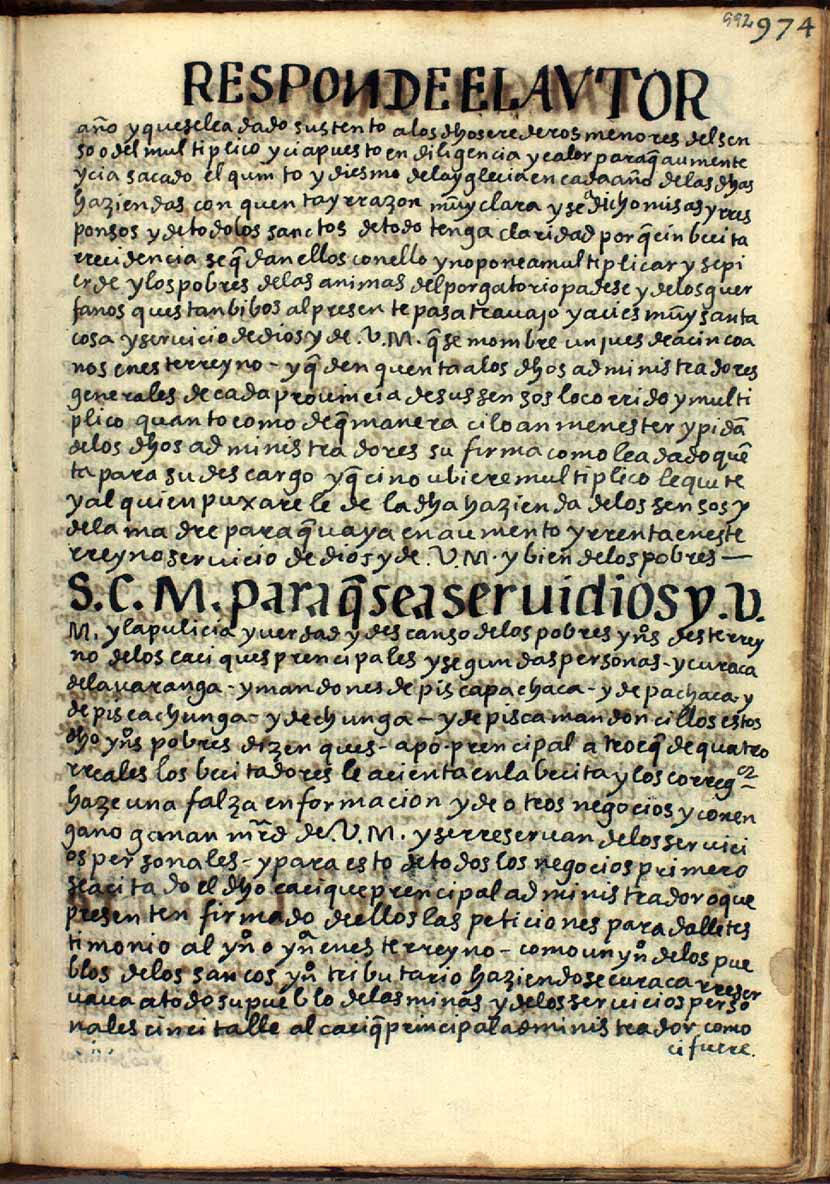 992 974
RESPONDE EL AVTOR
año y que se le a dado sustento a los dhos erederos menores del sen
so o del multiplico y ci a puesto en diligencia y calor para q̃ aumente
y ci a sacado el quinto y diesmo de la yglecia en cada año de las dhas
haziendas con quenta y rrazon muy clara y se a dicho misas y rres
ponsos y de todos los sanctos de todo tenga claridad porq̃ cin becita
rrecidencia se q̃dan ellos con ello y no pone a multiplicar y se pi
erde y los pobres de las animas del porgatorio padese y de los guer
fanos questan bibos al presente pasa trauajo y aci es muy santa
cosa y seruicio de dios y de .V.M. q̃ se mombre un jues de a cinco a
nos en este rreyno - y q̃ den quenta a los dhos administradores
generales de cada prouincia de sus sensos lo corrido y multi
plico quanto como de q̃ manera ci lo an menester y pidã
de los dhos administradores su firma como le a dado quẽ
ta para su descargo y q̃ ci no ubiere multiplico le quite
y al quien puxare le de la dha hazienda de los sensos y
de la madre para q̃ uaya en aumento y rrenta en este
rreyno seruicio de dios y de .V.M. y bien de los pobres —
S.C.M. para q̃ sea seruidios y .V.
M. y la pulicia y uerdad y descanso de los pobres yn̊s deste rrey
no de los caciques prencipales y segundas personas - y curaca
de la uaranga - y mandones de piscapachaca - y de pachaca - y
de piscachunga - y de chunga — y de pisca mandoncillos estos
dho yn̊s pobres dizen ques - apo - prencipal a trocq̃ de quatro
rreales los becitadores le acienta en la becita y los correg.ez
haze una falza enformacion y de otros negocios y con en
gano ganan mrd de .V.M. y se rreseruan de los seruici
os personales - y para esto de todos los negocios primero
sea citado el dho cacique prencipal administrador o que
presenten firmado de ellos las peticiones para dalle tes
timonio al yn̊ o yn̊a en este rreyno - como un yn̊ de los pue
blos de los sancos yn̊ tributario haziendose curaca rreser
uaua a todo su pueblo de las minas y de los seruicios perso
nales cin citalle al caciq̃ principal administrador como
ci fuere.